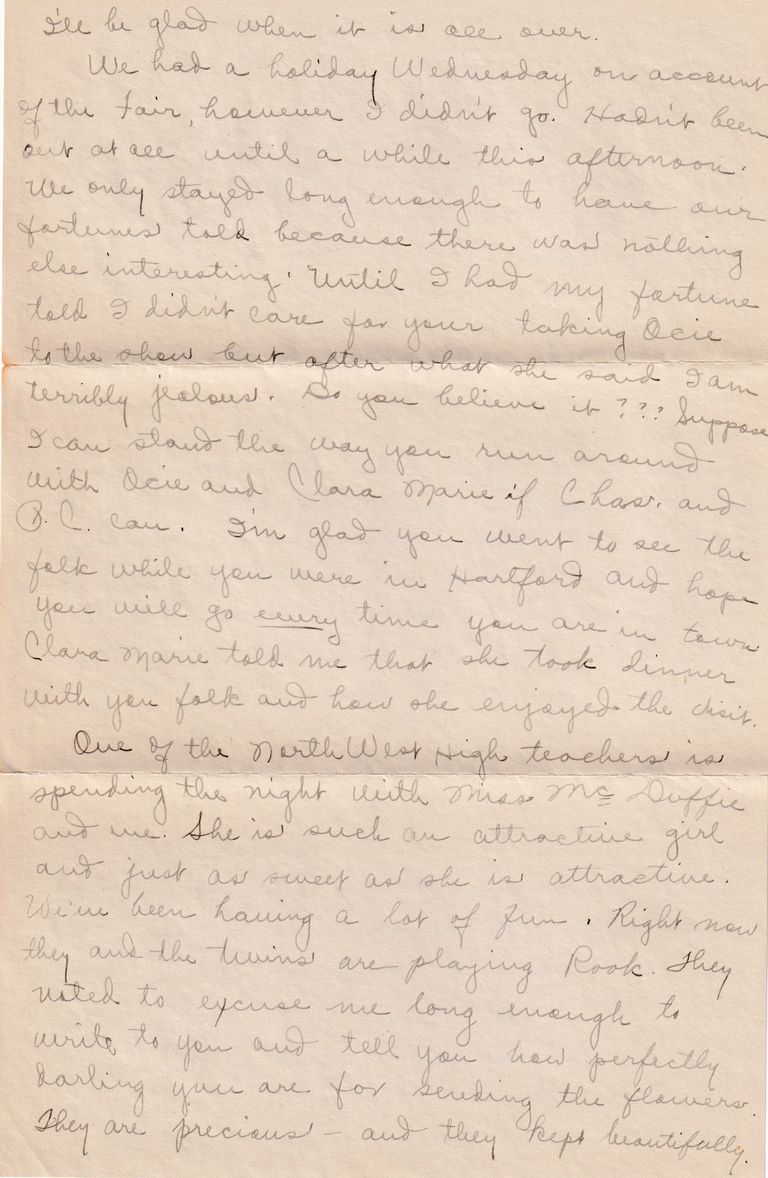 I'll be glad when it is all over.
We had a holiday Wednesday on account
of the Fair, however I didn't go. Hadn't been
out at all until a while this afternoon.
We only stayed long enough to have our
fortunes told because there was nothing
else interesting. Until I had my fortune
told I didn't care for your taking Ocie
to the show but after what she said I am
terribly jealous. Do you believe it??? Suppose
I can stand the way you run around
with Ocie and Clara Marie if Chas. and
B. C. can. I'm glad you went to see the
folk while you were in Hartford and hope
you will go every time you are in town
Clara Marie told me that she took dinner
with you folk and how she enjoyed the visit.
One of the North West High teachers is
spending the night with Miss Mc Duffie
and me. She is such an attractive girl
and just as sweet as she is attractive.
We've been having a lot of fun. Right now
they and the twins are playing Rook. They
voted to excuse me long enough to
write to you and tell you how perfectly
darling you are for sending the flowers.
They are precious – and they kept beautifully.